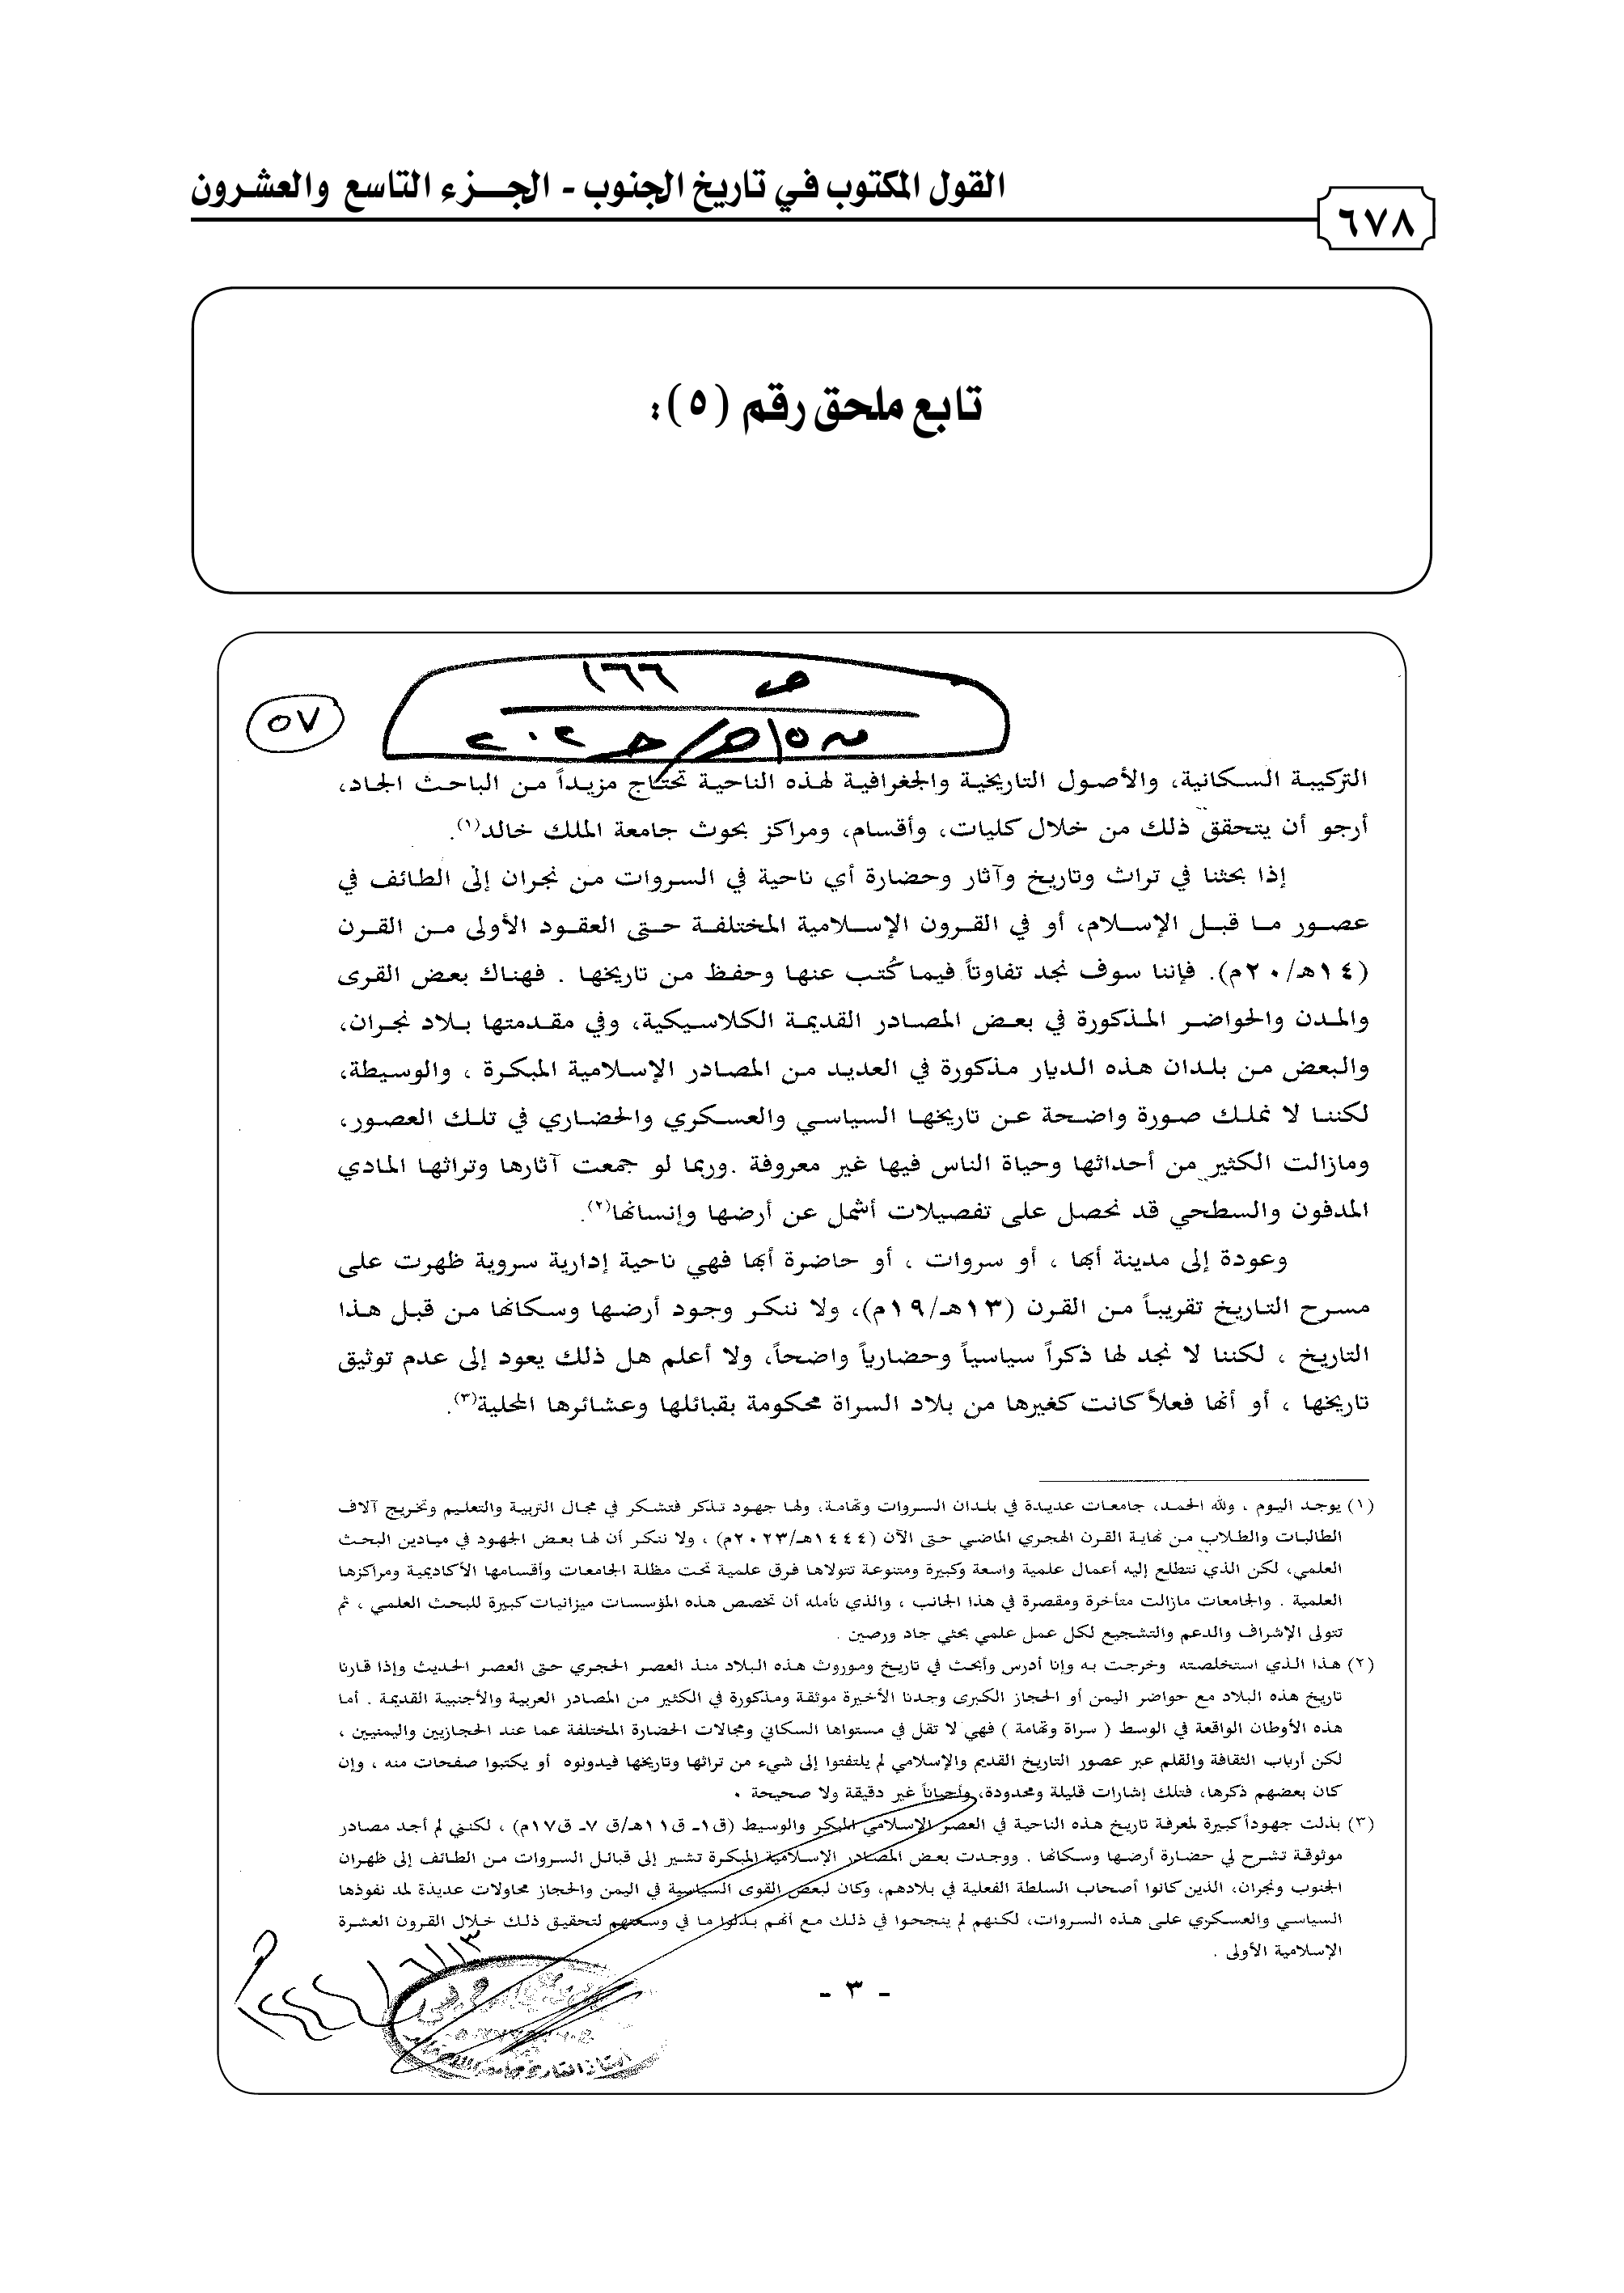 القول المكتوب في تاريخ الجنوب - الجزء التاسع والعشرون
٦٧٨
تابع ملحق رقم (٥):
ص ١٦٦
٥٧
التركيبة السكانية، والأصول التاريخية والجغرافية لهذه الناحية تحتاج مزيداً من الباحث الجاد،
أرجو أن يتحقق ذلك من خلال كليات، وأقسام، ومراكز بحوث جامعة الملك خالد(١).
إذا بحثنا في تراث وتاريخ وآثار وحضارة أي ناحية في السروات من نجران إلى الطائف في
عصور ما قبل الإسلام، أو في القرون الإسلامية المختلفة حتى العقود الأولى من القرن
(١٤هـ/٢٠م). فإننا سوف نجد تفاوتاً فيما كُتب عنها وحفظ من تاريخها . فهناك بعض القرى
والمدن والحواضر المذكورة في بعض المصادر القديمة الكلاسيكية، وفي مقدمتها بلاد نجران،
والبعض من بلدان هذه الديار مذكورة في العديد من المصادر الإسلامية المبكرة ، والوسيطة،
لكننا لا نملك صورة واضحة عن تاريخها السياسي والعسكري والحضاري في تلك العصور،
ومازالت الكثير من أحداثها وحياة الناس فيها غير معروفة .وربما لو جمعت آثارها وتراثها المادي
المدفون والسطحي قد نحصل على تفصيلات أشمل عن أرضها وإنسانها(٢).
وعودة إلى مدينة أبها ، أو سروات ، أو حاضرة أبها فهي ناحية إدارية سروية ظهرت على
مسرح التاريخ تقريباً من القرن (١٣هـ/١٩م)، ولا ننكر وجود أرضها وسكانها من قبل هذا
التاريخ ، لكننا لا نجد لها ذكراً سياسياً وحضارياً واضحاً، ولا أعلم هل ذلك يعود إلى عدم توثيق
تاريخها ، أو أنها فعلاً كانت كغيرها من بلاد السراة محكومة بقبائلها وعشائرها المحلية(٣).
(١) يوجد اليوم ، ولله الحمد، جامعات عديدة في بلدان السروات وتهامة، ولها جهود تذكر فتشكر في مجال التربية والتعليم وتخريج آلاف
الطالبات والطلاب من نهاية القرن الهجري الماضي حتى الآن (١٤٤٤هـ/٢٠٢٣م) ، ولا ننكر أن لها بعض الجهود في ميادين البحث
العلمي، لكن الذي نتطلع إليه أعمال علمية واسعة وكبيرة ومتنوعة تتولاها فرق علمية تحت مظلة الجامعات وأقسامها الأكاديمية ومراكزها
العلمية . والجامعات مازالت متأخرة ومقصرة في هذا الجانب ، والذي نأمله أن تخصص هذه المؤسسات ميزانيات كبيرة للبحث العلمي ، ثم
تتولى الإشراف والدعم والتشجيع لكل عمل علمي بحثي جاد ورصين .
(٢) هذا الذي استخلصته وخرجت به وإنا أدرس وأبحث في تاريخ وموروث هذه البلاد منذ العصر الحجري حتى العصر الحديث وإذا قارنا
تاريخ هذه البلاد مع حواضر اليمن أو الحجاز الكبرى وجدنا الأخيرة موثقة ومذكورة في الكثير من المصادر العربية والأجنبية القديمة . أما
هذه الأوطان الواقعة في الوسط ( سراة وتهامة ) فهي لا تقل في مستواها السكاني ومجالات الحضارة المختلفة عما عند الحجازيين واليمنيين ،
لكن أرباب الثقافة والقلم عبر عصور التاريخ القديم والإسلامي لم يلتفتوا إلى شيء من تراثها وتاريخها فيدونوه أو يكتبوا صفحات منه ، وإن
كان بعضهم ذكرها، فتلك إشارات قليلة ومحدودة، وأحياناً غير دقيقة ولا صحيحة .
(٣) بذلت جهوداً كبيرة لمعرفة تاريخ هذه الناحية في العصر الإسلامي المبكر والوسيط (ق١- ق١١هـ/ق ٧- ق١٧م) ، لكنني لم أجد مصادر
موثوقة تشرح لي حضارة أرضها وسكانها . ووجدت بعض المصادر الإسلامية المبكرة تشير إلى قبائل السروات من الطائف إلى ظهران
الجنوب ونجران، الذين كانوا أصحاب السلطة الفعلية في بلادهم، وكان لبعض القوى السياسية في اليمن والحجاز محاولات عديدة لمد نفوذها
السياسي والعسكري على هذه السروات، لكنهم لم ينجحوا في ذلك مع أنهم بذلوا ما في وسعهم لتحقيق ذلك خلال القرون العشرة
الإسلامية الأولى .
- ٣ -